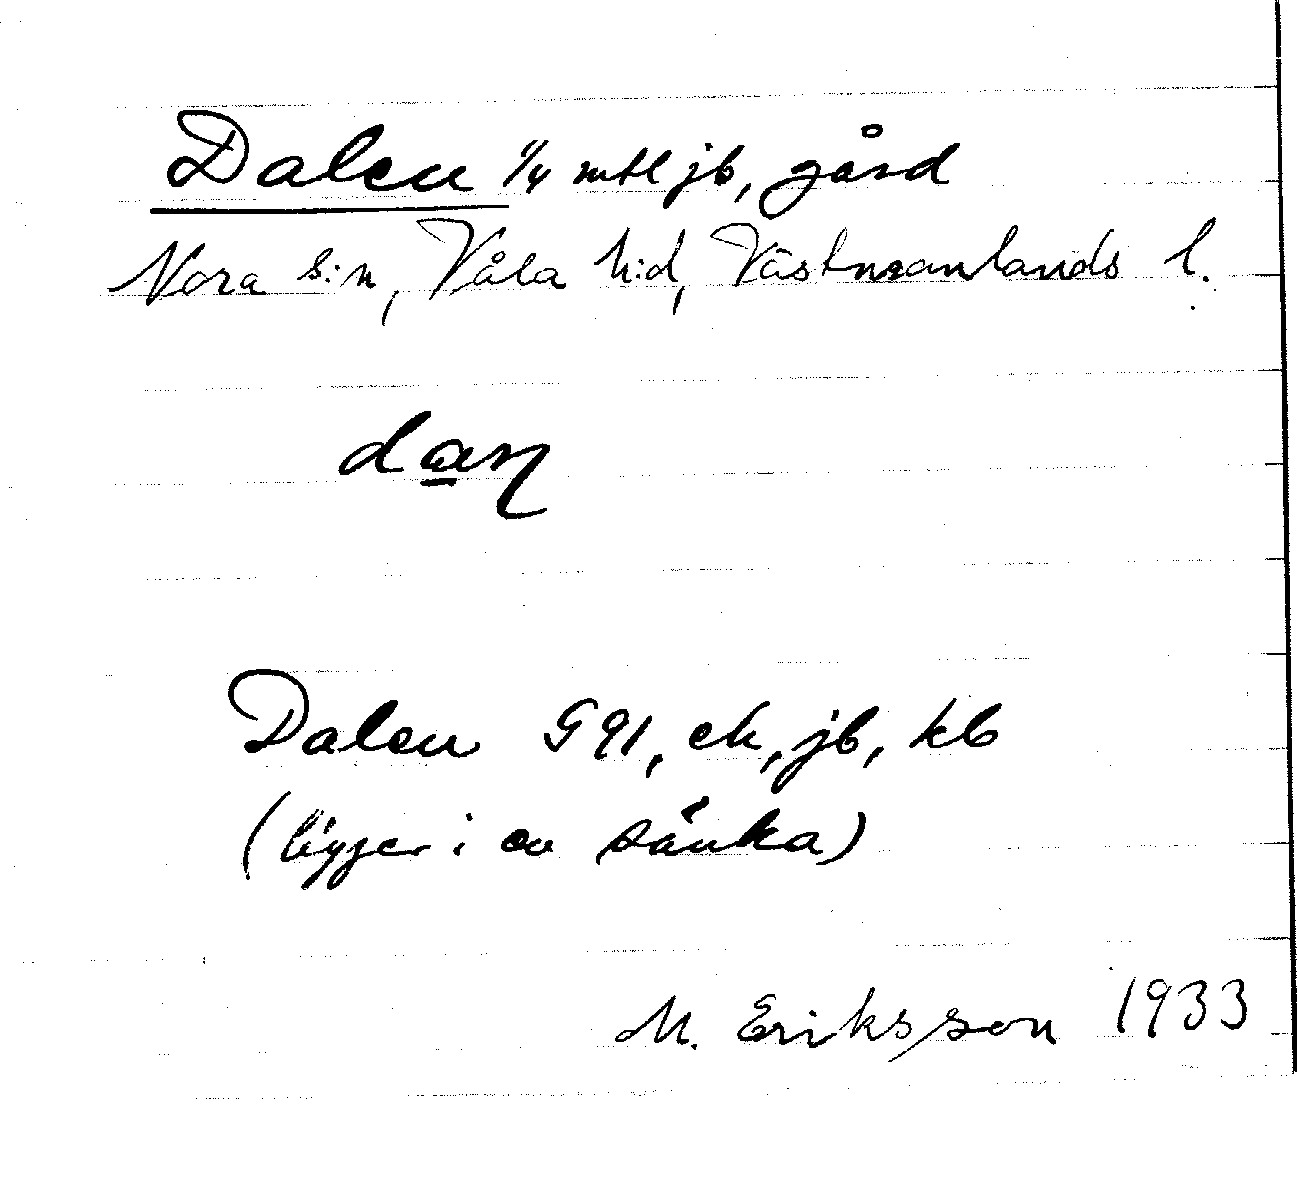 Dalen 1/4 mtl jb, gård
Nora s:n, Våla h:d, Västmanlands l.
dan
Dalen G 91, ek, jb, kb
(ligger i en sänka)
M. Eriksson 1933